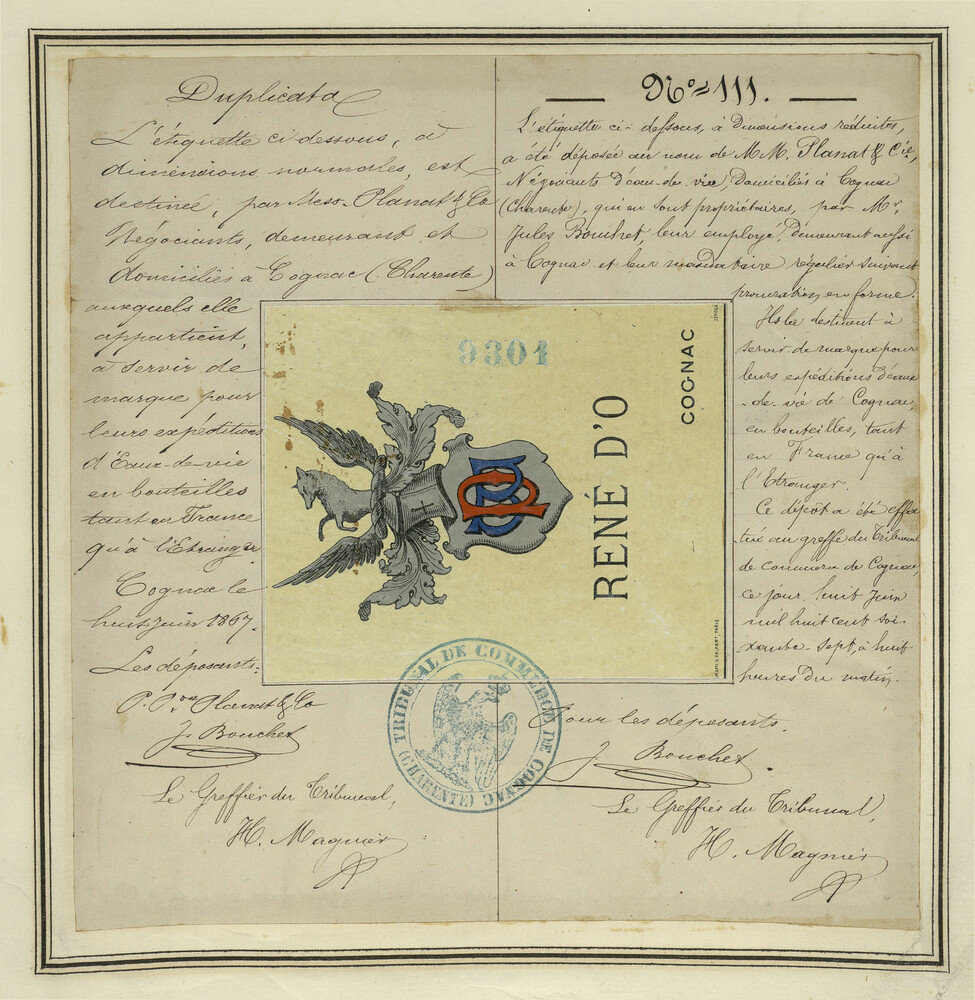 Duplicata
L'étiquette ci-dessous, à
dimensions normales, est
destinée, par Mess. Planat & Co
Négociants, demeurant et
domiciliés à Cognac (Charente)
auxquels elle
appartient,
à servir de
marque pour
leurs expéditions
d'Eaux-de-vie
en bouteilles
tant en France
qu'à l'Etranger
Cognac le
huit juin 1867.
Les déposants.
P. Pon Planat & Co
J. Bouchet
Le Greffier du Tribunal,
H. Magnier
N° 111.
L'étiquette ci-dessous, à Dimensions réduites,
a été déposée au nom de M.M. Planat & Cie,
Négociants D'eau-de-vie, Domiciliés à Cognac
(Charente), qui en sont propriétaires, par Mr
Jules Bouchet, leur employé, Demeurant aussi
à Cognac et leur mandataire régulier suivant
procuration en forme.
Ils la destinent à
servir de marque pour
leurs expéditions d'eaux
-de-vie de Cognac,
en bouteilles, tant
en France qu'à
l'Etranger.
Ce dépôt a été effec
-tué au greffe du Tribunal
de commerce de Cognac,
ce jour, huit Juin
mil huit cent soi-
xante-sept, à huit
heures du matin.
Pour les déposants.
J. Bouchet.
Le Greffier du Tribunal,
H. Magnier
9301
RENÉ D'O
COGNAC
DÉPOSÉ
PARIS
TRIBUNAL DE COMMERCE DE COGNAC
(CHARENTE)